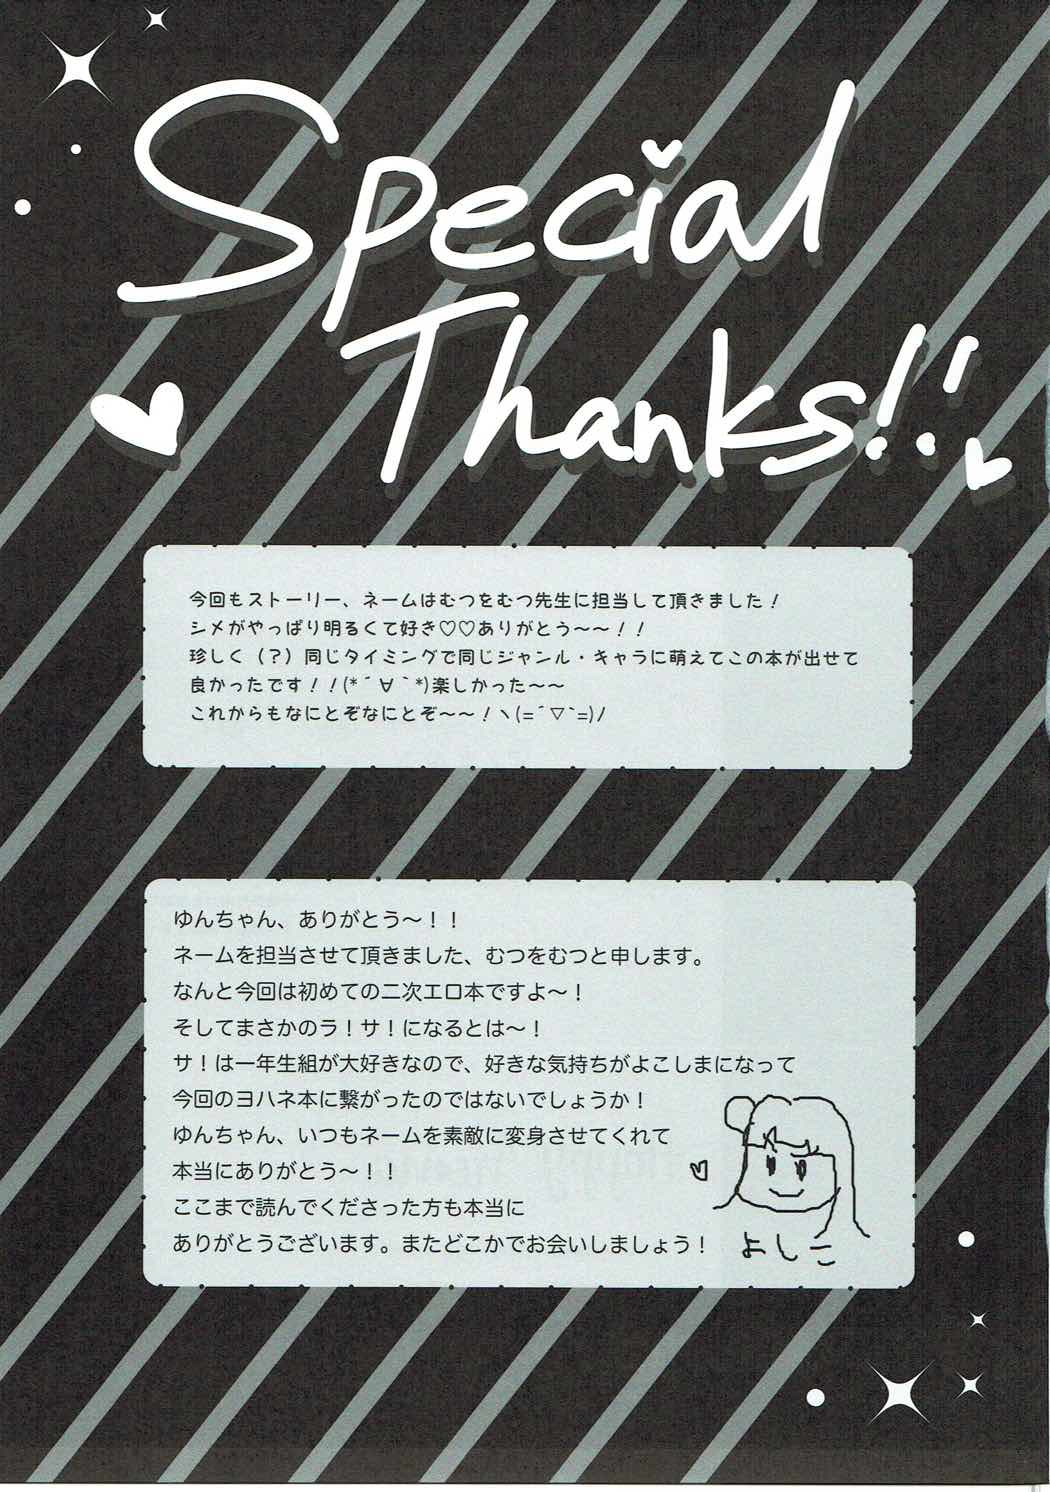 Special
Thanks!!
今回もストーリー、ネームはむつをむつ先生に担当して頂きました!
シメがやっぱり明るくて好き♡♡ありがとう～～!!
珍しく(?)同じタイミングで同じジャンル・キャラに萌えてこの本が出せて
良かったです!!(*´∀｀*)楽しかった～～
これからもなにとぞなにとぞ～～!ヽ(=´▽`=)ﾉ
ゆんちゃん、ありがとう～!!
ネームを担当させて頂きました、むつをむつと申します。
なんと今回は初めての二次エロ本ですよ～!
そしてまさかのラ!サ!になるとは～!
サ!は一年生組が大好きなので、好きな気持ちがよこしまになって
今回のヨハネ本に繋がったのではないでしょうか!
ゆんちゃん、いつもネームを素敵に変身させてくれて
本当にありがとう～!!
ここまで読んでくださった方も本当に
ありがとうございます。またどこかでお会いしましょう!
よしこ